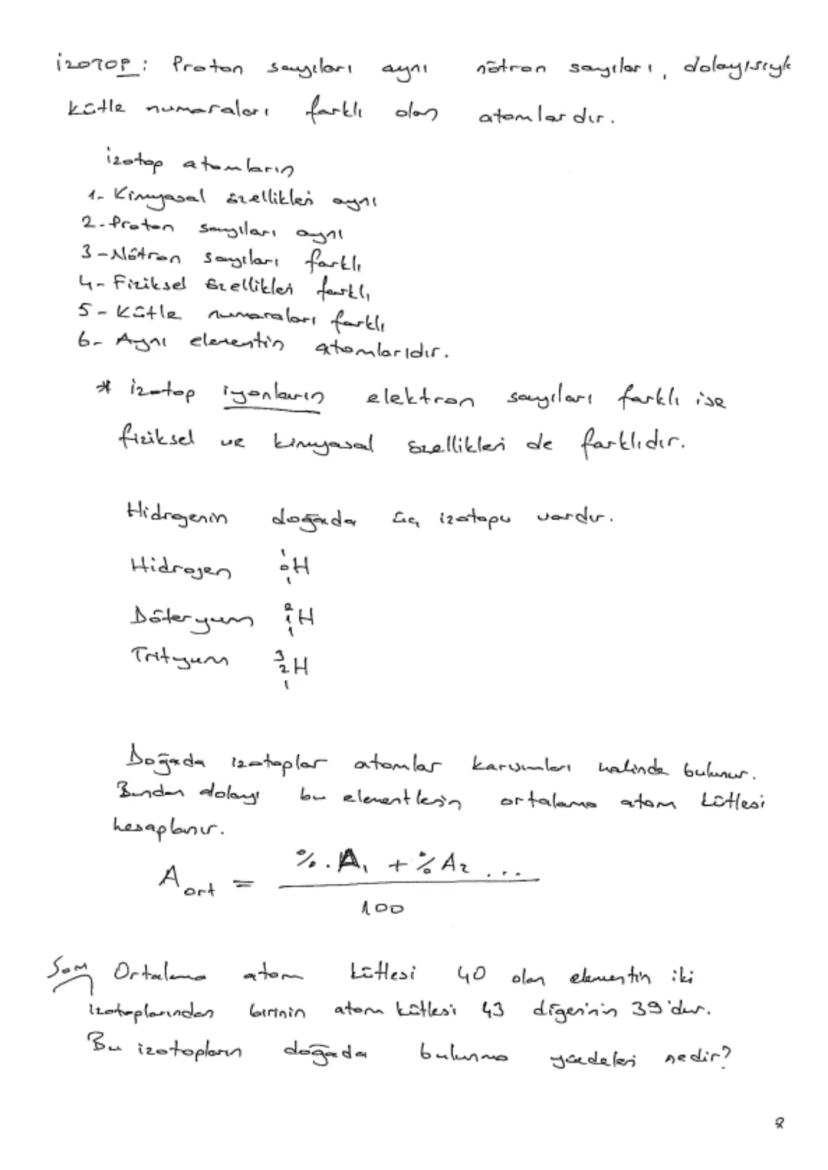 İZOTOP : Proton sayıları aynı nötron sayıları, dolayısıyle
kütle numaraları farklı olan atomlardır.
izotop atomların
1- Kimyasal özellikleri aynı
2- Proton sayıları aynı
3- Nötron sayıları farklı
4- Fiziksel özellikleri farklı
5- Kütle numaraları farklı
6- Aynı elementin atomlarıdır.
* izotop iyonların elektron sayıları farklı ise
fiziksel ve kimyasal özellikleri de farklıdır.
Hidrogenin doğada üç izotopu vardır.
Hidrojen ¹₀H
1
Döteryum ²₁H
1
Trityum ³₂H
1
Doğada izotoplar atomlar karışımları halinde bulunur.
Bundan dolayı bu elementlerin ortalama atom kütlesi
hesaplanır.
A ort = %. A₁ + % A₂ ...
100
Soru Ortalama atom kütlesi 40 olan elementin iki
izotoplarından birinin atom kütlesi 43 diğerinin 39'dur.
Bu izotopların doğada bulunma yüzdeleri nedir?
8